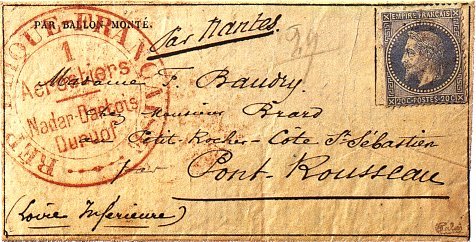 PAR BALLON MONTÉ.
Par Nantes.
RÉPUBLIQUE FRANÇAISE
1
Aérostiers
Nadar-Dartois
Duruof
EMPIRE FRANÇAIS
20C POSTES 20C
Madame F. Baudry
chez Monsieur Brard
Petit-Rocher - Côte St Sébastien
Pont-Rousseau
(Loire Inférieure)